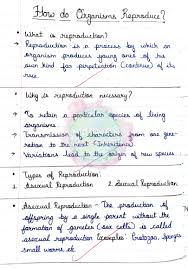 How do Organisms Reproduce?
• What is reproduction?
• Reproduction is a process by which an
organism produces young ones of his
own kind for perpetuation (continue) of its
race.
• Why is reproduction necessary?
• To retain a particular species of living
organisms
• Transmission of characters from one gene-
ration to the next (Inheritance)
• Variations lead to the origin of new species.
• Types of Reproduction:
1. Asexual Reproduction 2. Sexual Reproduction
• Asexual Reproduction - The production of
offspring by a single parent without the
formation of gametes (sex cells) is called
asexual reproduction Examples:
small worms etc